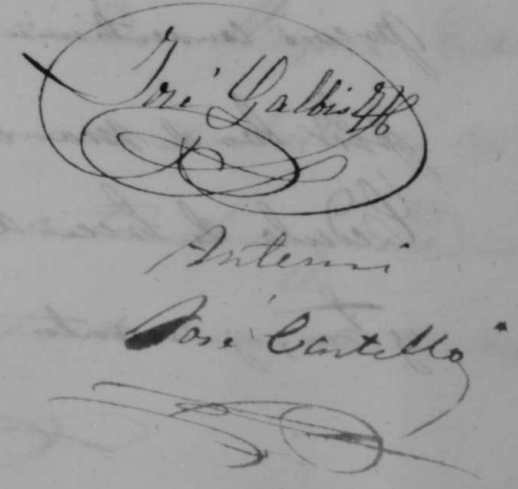 José Galbis
Antemi
José Castelló